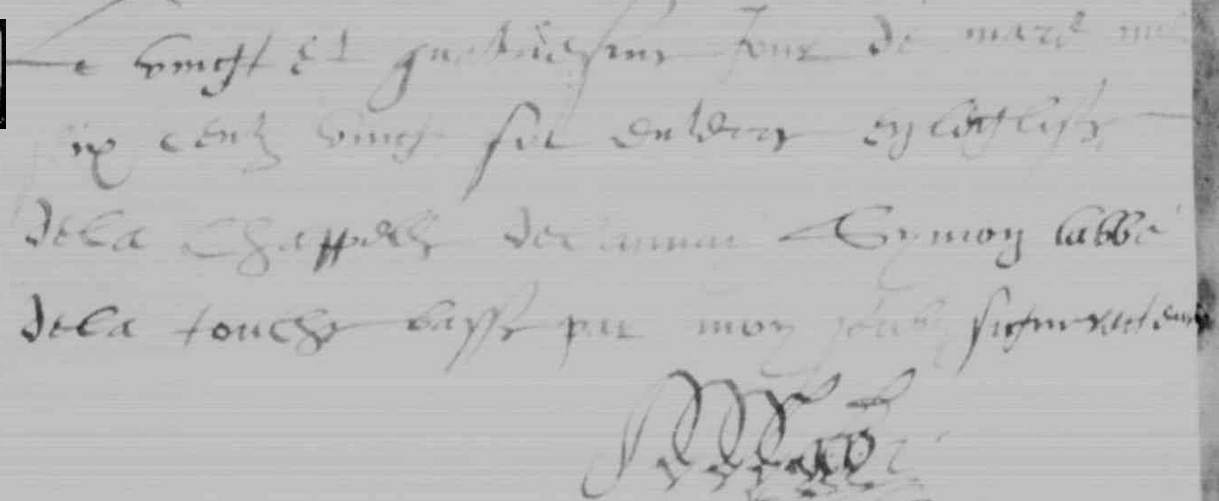 Le vingt et quatriesme jour de mars mil
six centz vingt fut enterre en leglise
de la Chappelle Symon labbe
de la touche basse par moy soubz signe